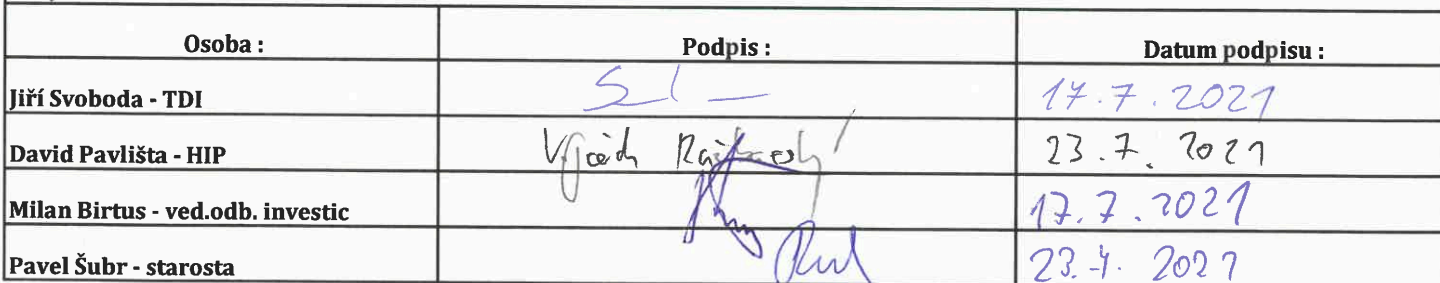 Osoba : Podpis : Datum podpisu :
Jiří Svoboda - TDI 17.7.2021
David Pavlišta - HIP 23.7.2021
Milan Birtus - ved.odb. investic 17.7.2021
Pavel Šubr - starosta 2021